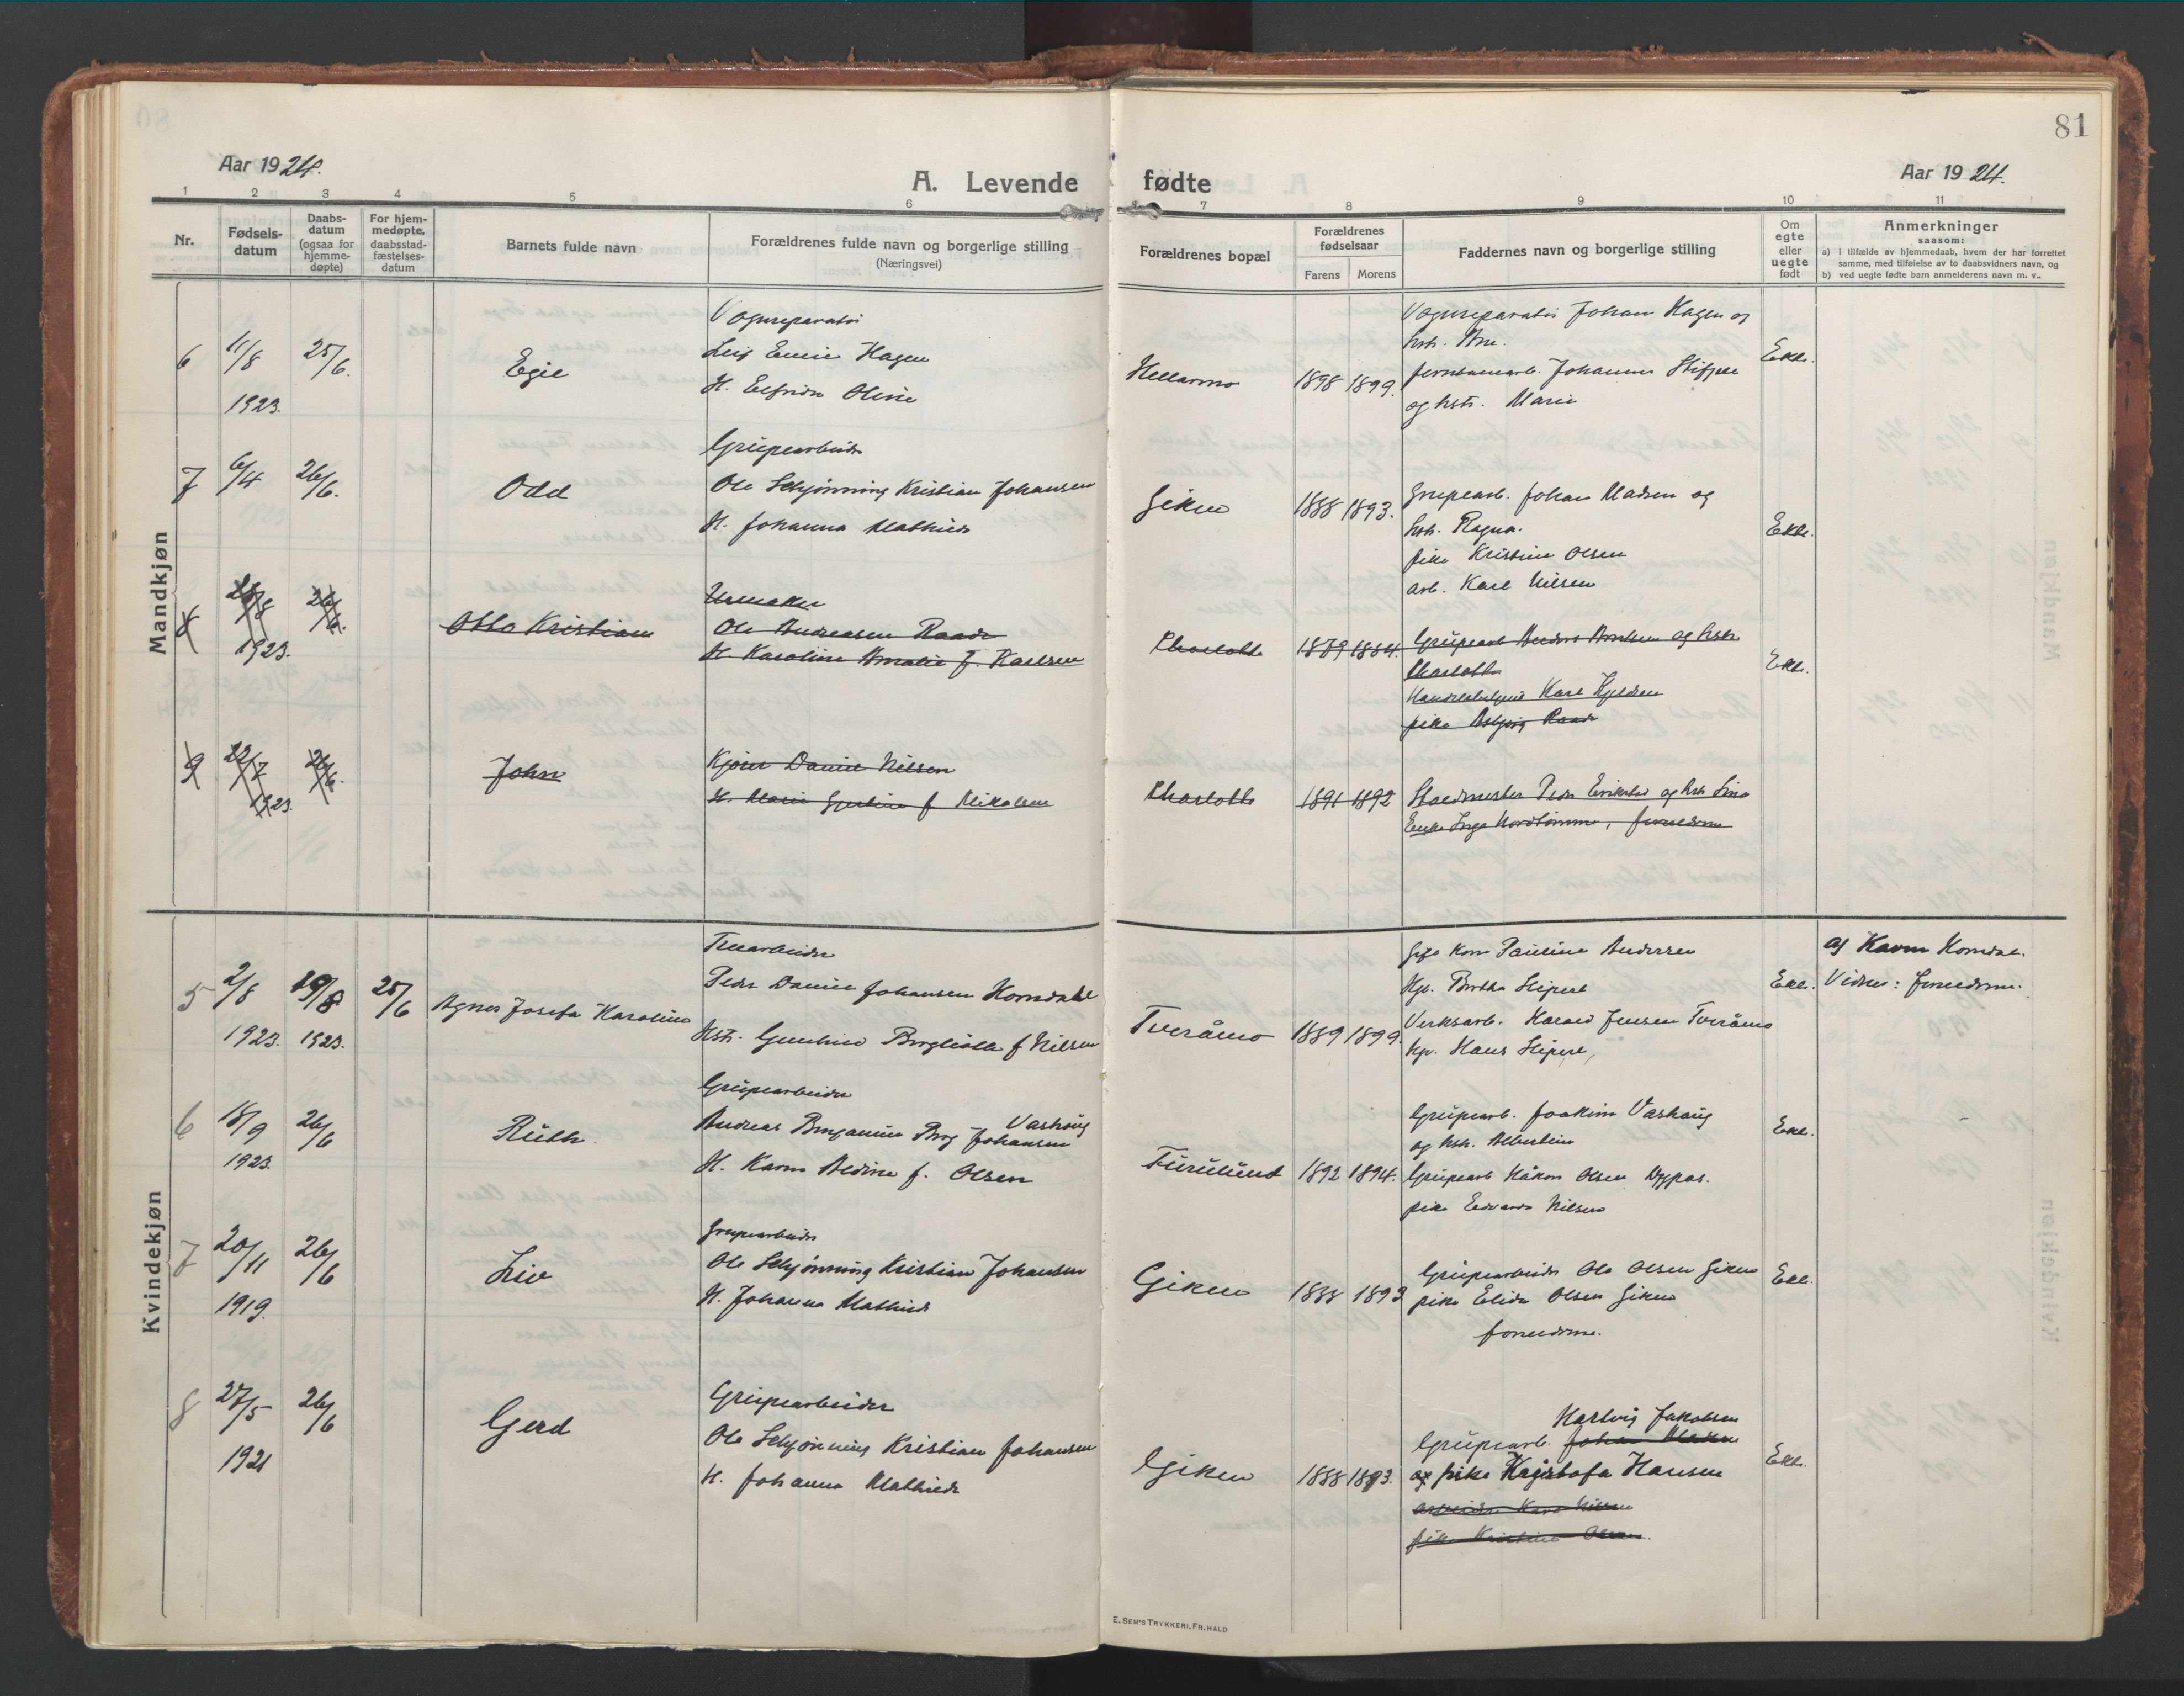 81
Aar 1924.
A. Levende
fødte
Aar 1924.
1 2 3 4 5 6 7 8 9 10 11
Nr.
Fødsels-
datum
Daabs-
datum
(ogsaa for
hjemme-
døpte)
For hjem-
medøpte,
daabsstad-
fæstelses-
datum
Barnets fulde navn
Forældrenes fulde navn og borgerlige stilling
(Næringsvei)
Forældrenes bopæl
Forældrenes
fødselsaar
Farens Morens
Faddernes navn og borgerlige stilling
Om
egte
eller
uegte
født
Anmerkninger
saasom:
a) i tilfælde av hjemmedaab, hvem der har forrettet
samme, med tilføielse av to daabsvidners navn, og
b) ved uegte fødte barn anmelderens navn m. v..
Mandkjøn
6 11/8 1923. 25/6. Egil
Vognreparatør
Leif Emil Hagen
H. Elfrida Oline
Hellarmo 1898 1899.
Vognreparatør Johan Hagen og
hstr.
Johannes
og hstr. Marie
Ekte.
7 6/4 26/6. Odd
Grubearbeider
Ole Schjønning Kristian Johansen
H. Johanna Mathisd
Giken 1888 1893.
Grubearb. Johan Madsen og
hstr. Ragna.
pike Kristine Olsen
arb. Karl Nilsen
Ekte.
8 1923. 26/6. Otto Kristian
Urmaker
Ole Andreasen Raade
H. Karoline Amalie f. Karlsen
Charlotta 1879 1884.
Grubearb og hstr
Charlotta
Karl Kjeldsen
pike Asbjørg Raade
Ekte.
9 22/7 1923. 26/6. John
Daniel Nilsen
H. Marie f Mikalsen
Charlotta 1891 1892
Stordmester Peder og hstr Lina
Inga forældrene
Kvindekjøn
5 2/8 1923. 19/8 1923. 25/6 Agnes Josefa Karoline
Trearbeider
Peder Daniel Johansen Horndahl
Hstr. f Nilsen
Tveråmo 1889 1899.
Paulina Andersen
Kp.
Verksarb. Harald Jensen Tveråmo
kp. Hans
Ekte.
af Karen Horndal.
Vidner: forældrene.
6 18/9 1923. 26/6 Ruth.
Grubearbeider
Vashaug
Andreas Benjamin Berg Johansen
H. Karen Aldine f. Olsen
Furulund 1892 1894.
Grubearb. Joakim Vashaug
og hstr. Albertine
Grubearb Håkon Olsen
pike Edvarda Nilsen
Ekte.
7 20/11 1919. 26/6 Liv
Grubearbeider
Ole Schjønning Kristian Johansen
H. Johanna Mathisd
Giken 1888 1893
Grubearbeider Ole Olsen Giken
pike Elida Olsen Giken
forældrene.
Ekte.
8 27/5 1921 26/6 Gerd
Grubearbeider
Ole Schjønning Kristian Johansen
H. Johanna Mathisd
Giken 1888 1893.
Hartvig Jakobsen
Grubearb. Johan Madsen
og pike Kristofa Hansen
arbeider Karl Nilsen
pike Kristine Olsen.
Ekte.
E. SEM'S TRYKKERI, FR.HALD